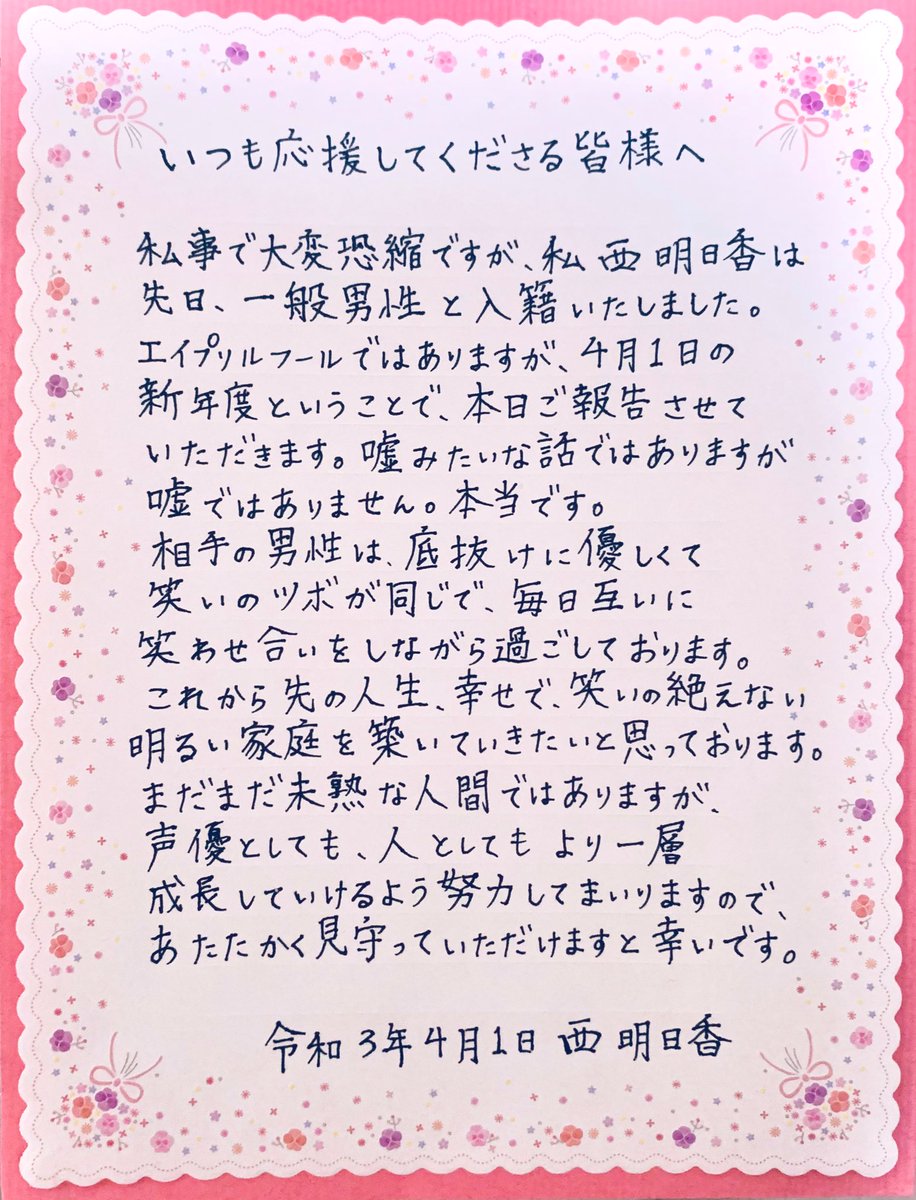 いつも応援してくださる皆様へ
私事で大変恐縮ですが、私 西 明日香は
先日、一般男性と入籍いたしました。
エイプリルフールではありますが、4月1日の
新年度ということで、本日ご報告させて
いただきます。嘘みたいな話ではありますが
嘘ではありません。本当です。
相手の男性は、底抜けに優しくて
笑いのツボが同じで、毎日互いに
笑わせ合いをしながら過ごしております。
これから先の人生、幸せで、笑いの絶えない
明るい家庭を築いていきたいと思っております。
まだまだ未熟な人間ではありますが、
声優としても、人としても より一層
成長していけるよう努力してまいりますので、
あたたかく見守っていただけますと幸いです。
令和3年4月1日 西 明日香